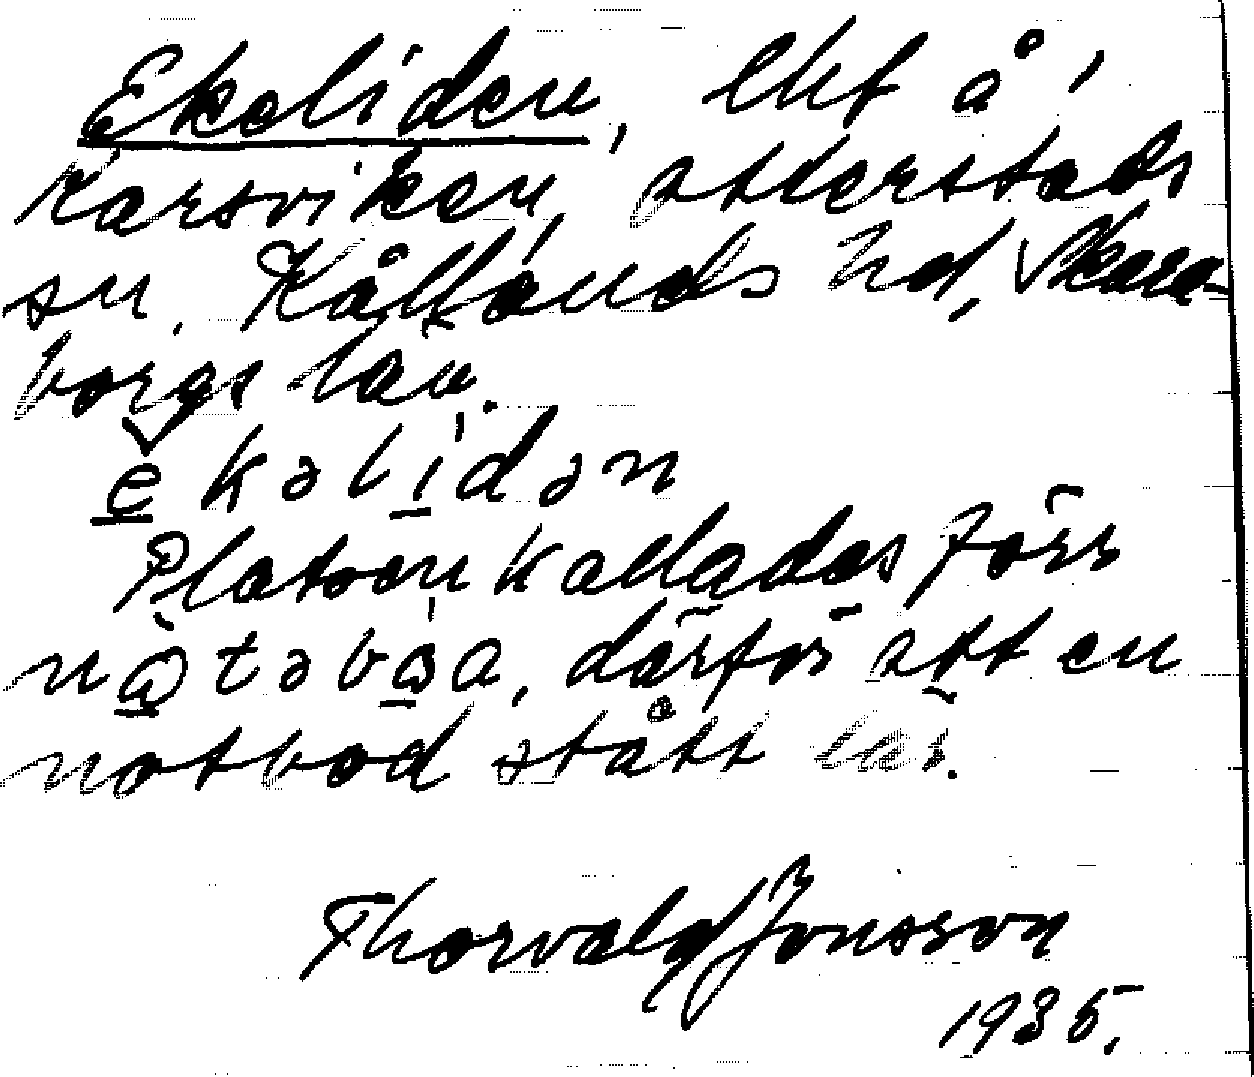 Ekeliden, lht å
Karsviken, Otterstads
sn. Kållands hd, Skara-
borgs län.
ekəlidən
Platsen kallades förr
nɷtəbɷa, därför att en
notbod stått här.
Thorvald Jonsson
1935.